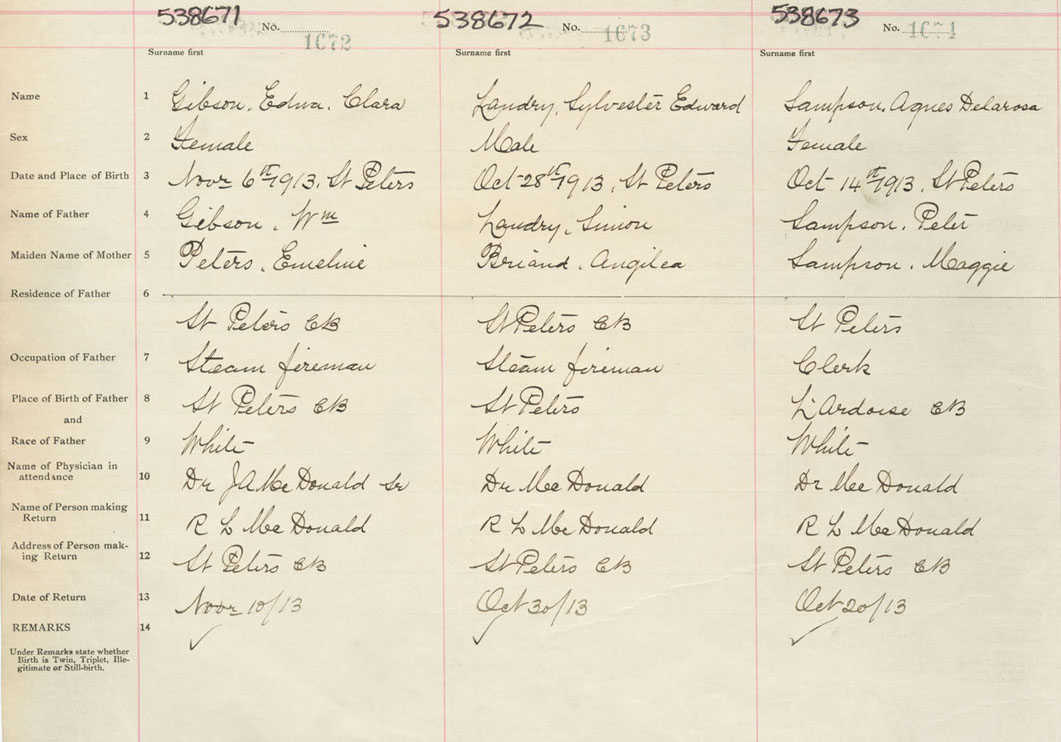 538671 No. 1672 538672 No. 1673 538673 No. 1674
Surname first Surname first Surname first
Name 1 Gibson, Edna, Clara Landry, Sylvester Edward Sampson, Agnes Delarosa
Sex 2 Female Male Female
Date and Place of Birth 3 Novr 6th 1913, St Peters Oct 28th 1913, St Peters Oct 14th 1913, St Peters
Name of Father 4 Gibson, Wm Landry, Simon Sampson, Peter
Maiden Name of Mother 5 Peters, Emeline Briand, Angilea Sampson, Maggie
Residence of Father 6
St Peters CB St Peters CB St Peters
Occupation of Father 7 Steam fireman Steam fireman Clerk
Place of Birth of Father 8 St Peters CB St Peters L'Ardoise CB
and
Race of Father 9 White White White
Name of Physician in
attendance 10 Dr J A McDonald Sr Dr McDonald Dr McDonald
Name of Person making
Return 11 R L McDonald R L McDonald R L McDonald
Address of Person mak-
ing Return 12 St Peters CB St Peters CB St Peters CB
Date of Return 13 Novr 10/13 Oct 30/13 Oct 20/13
REMARKS 14 ✓ ✓ ✓
Under Remarks state whether
Birth is Twin, Triplet, Ille-
gitimate or Still-birth.